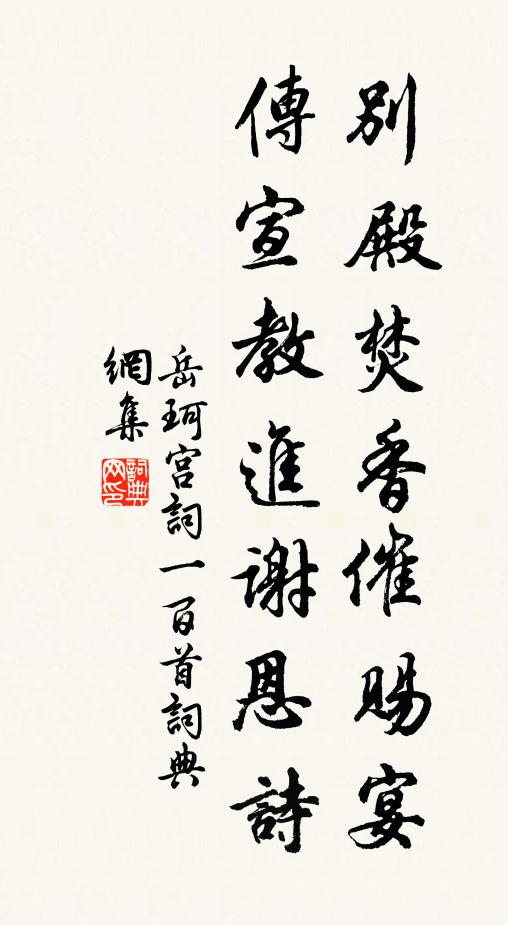 別殿焚香催賜宴
傳宣教進謝恩詩
岳珂宮詞一百首詞典
網集
詞典
网印